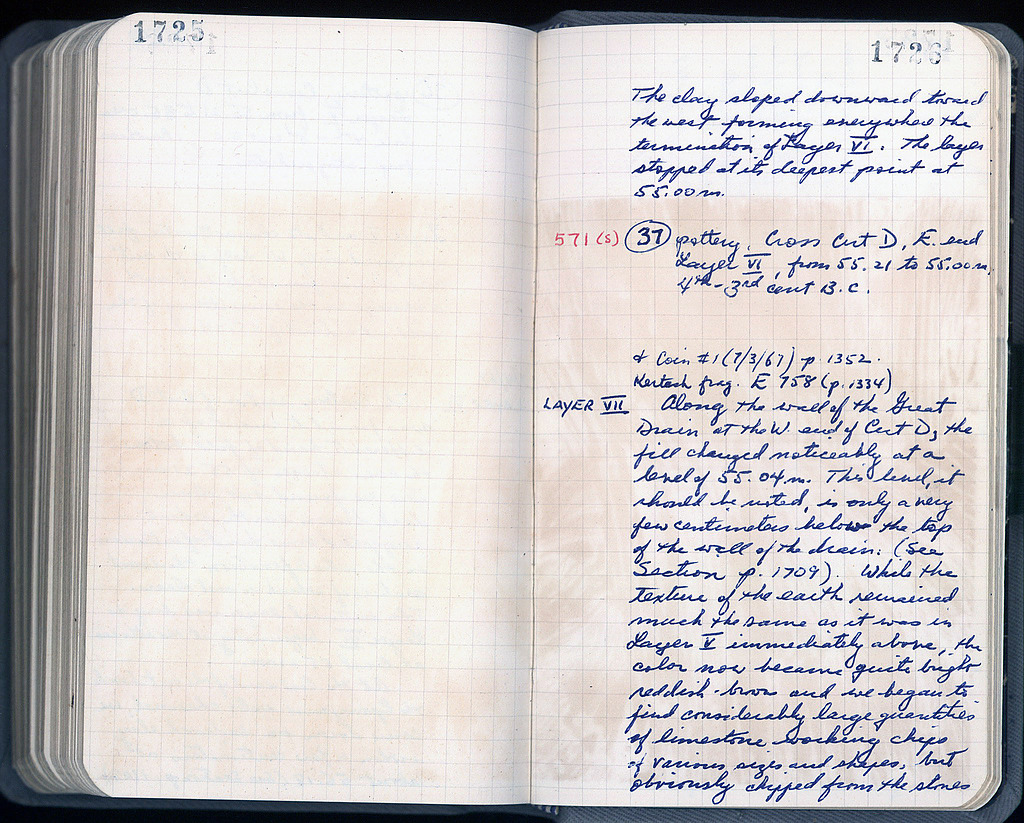 1725
1726
The clay sloped downward toward
the west forming everywhere the
termination of Layer VI. The layer
stopped at its deepest point at
55.00 m.
571 (s) 37 pottery, Cross Cut D, E. end
Layer VI, from 55.21 to 55.00 m.
4th-3rd cent B.C.
& Coin #1 (7/3/67) p 1352.
Kertsch frag. E 758 (p. 1334)
LAYER VII Along the wall of the Great
Drain at the W. end of Cut D, the
fill changed noticeably at a
level of 55.04 m. This level, it
should be noted, is only a very
few centimeters below the top
of the wall of the drain. (See
Section p. 1709). While the
texture of the earth remained
much the same as it was in
Layer V immediately above, the
color now became quite bright
reddish-brown and we began to
find considerably large quantities
of limestone working chips
of various sizes and shapes, but
obviously chipped from the stones